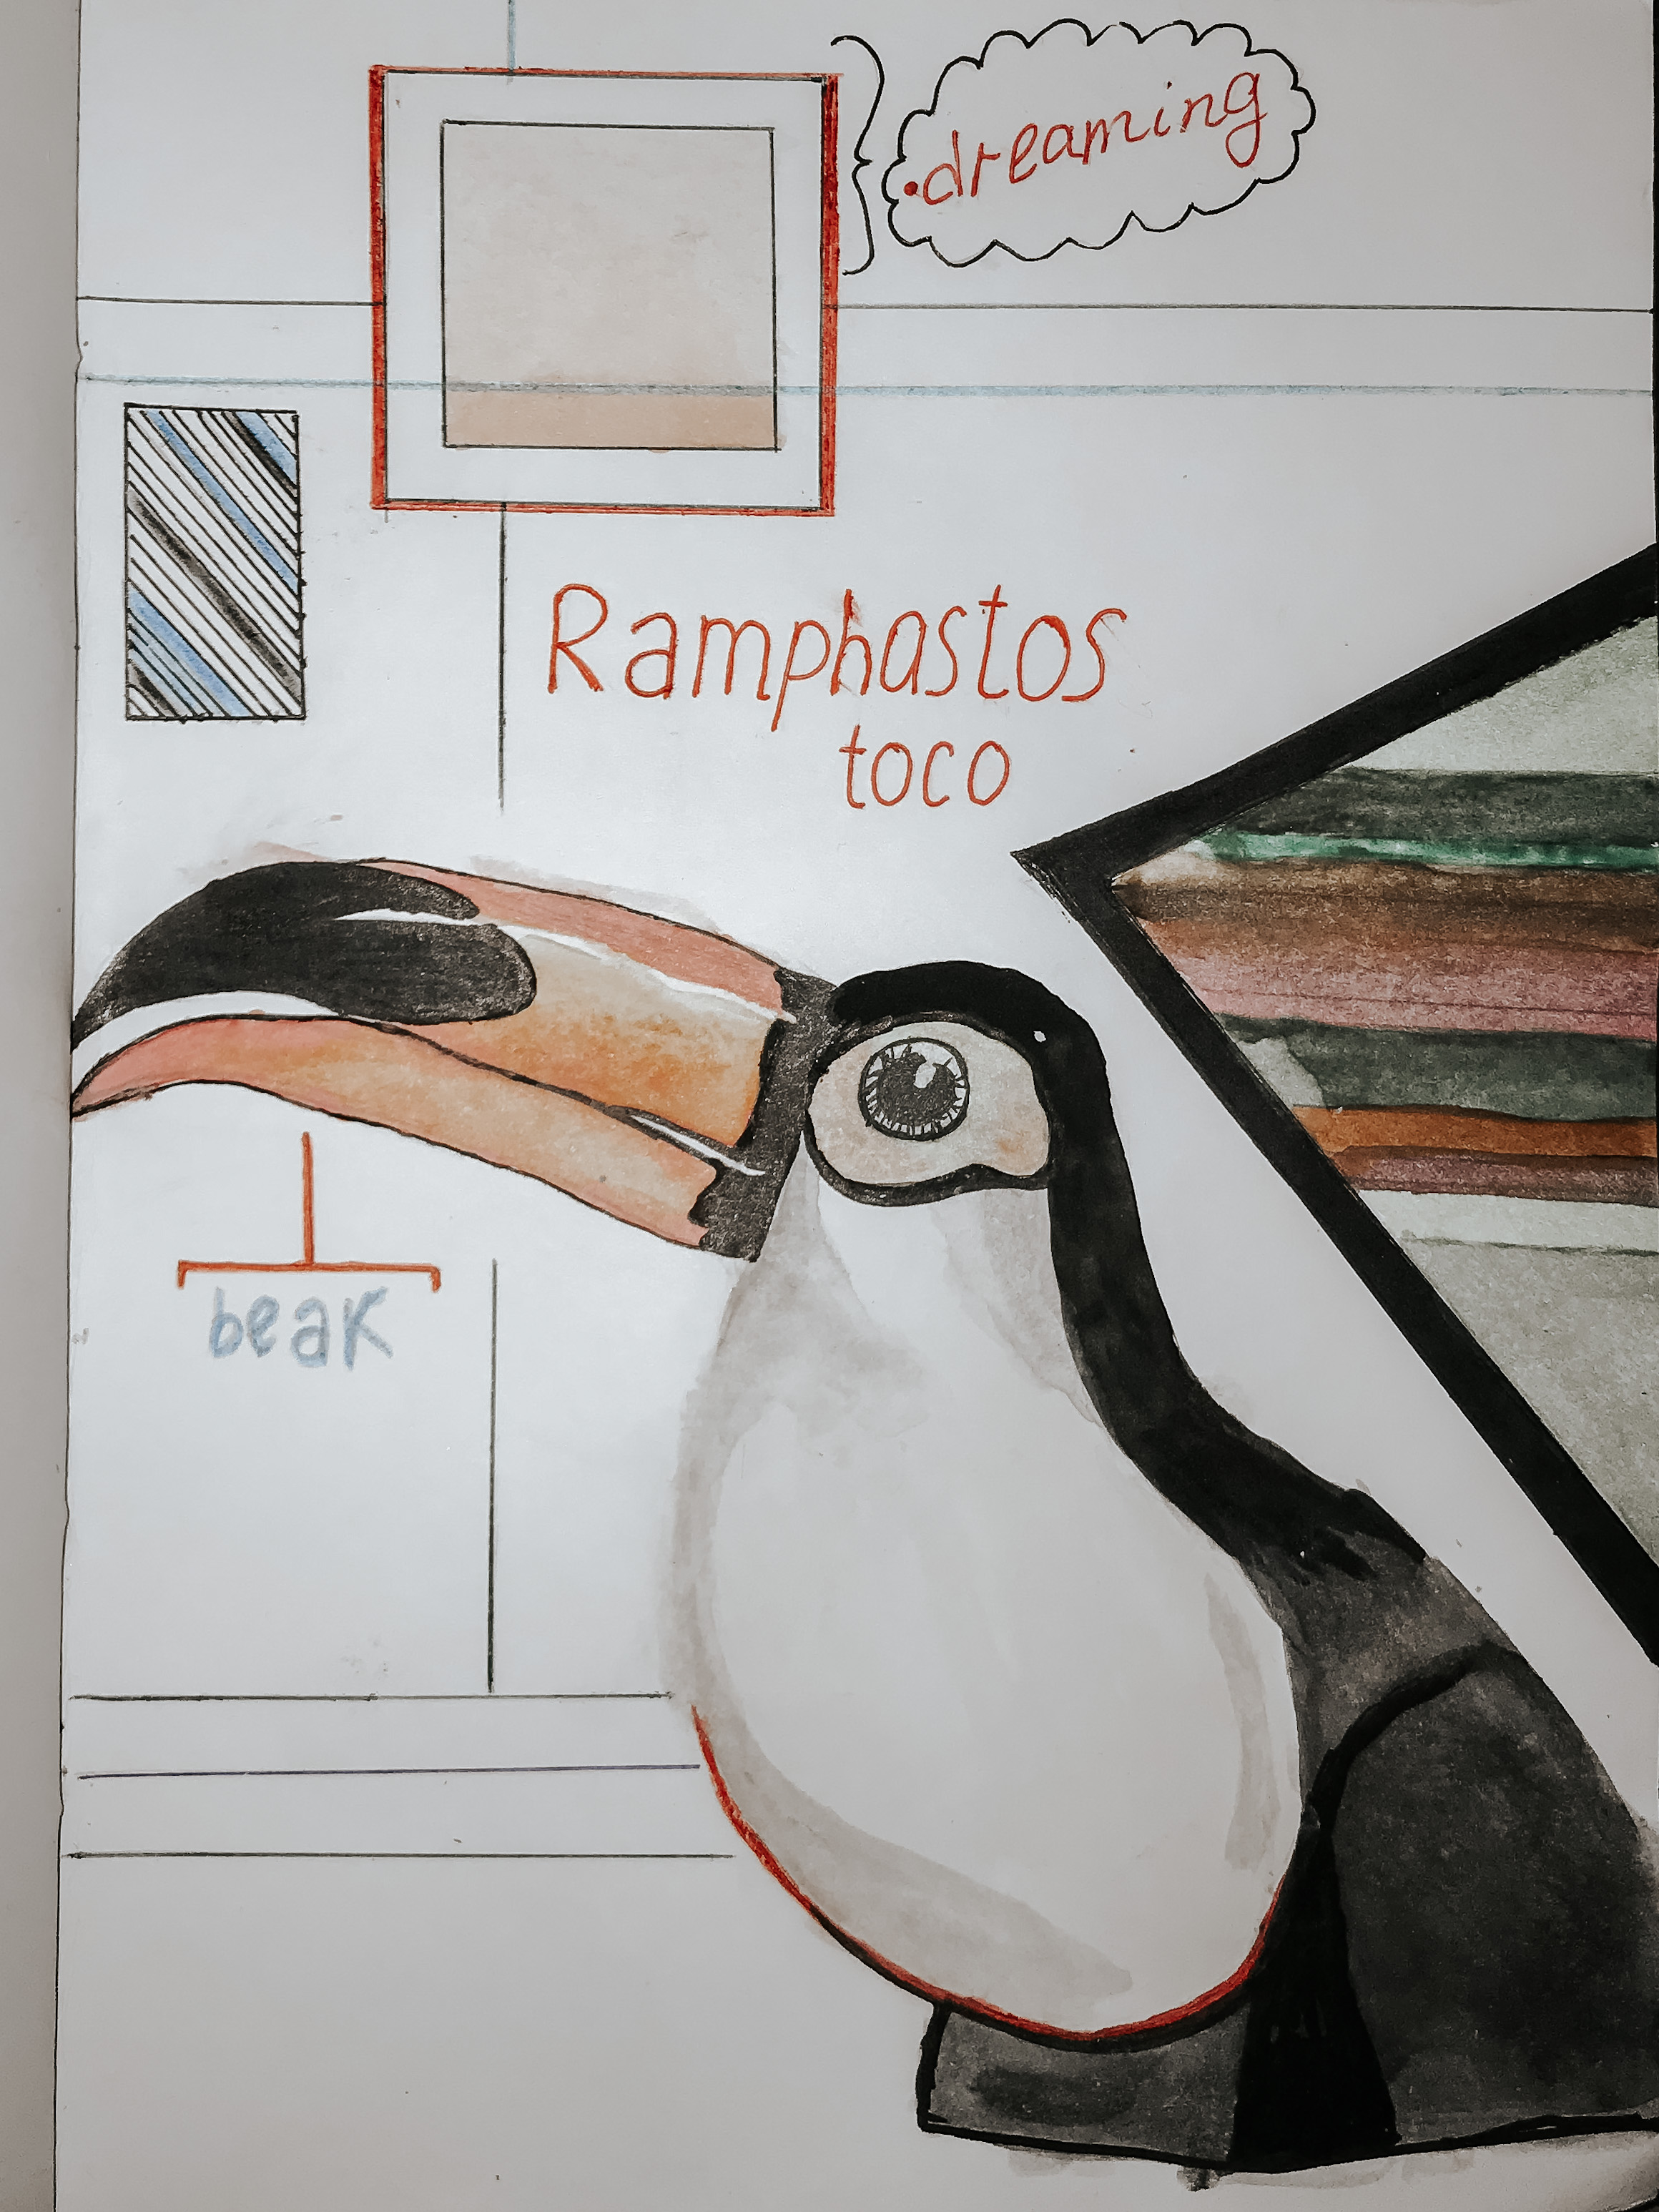 dreaming
Ramphastos
toco
beak